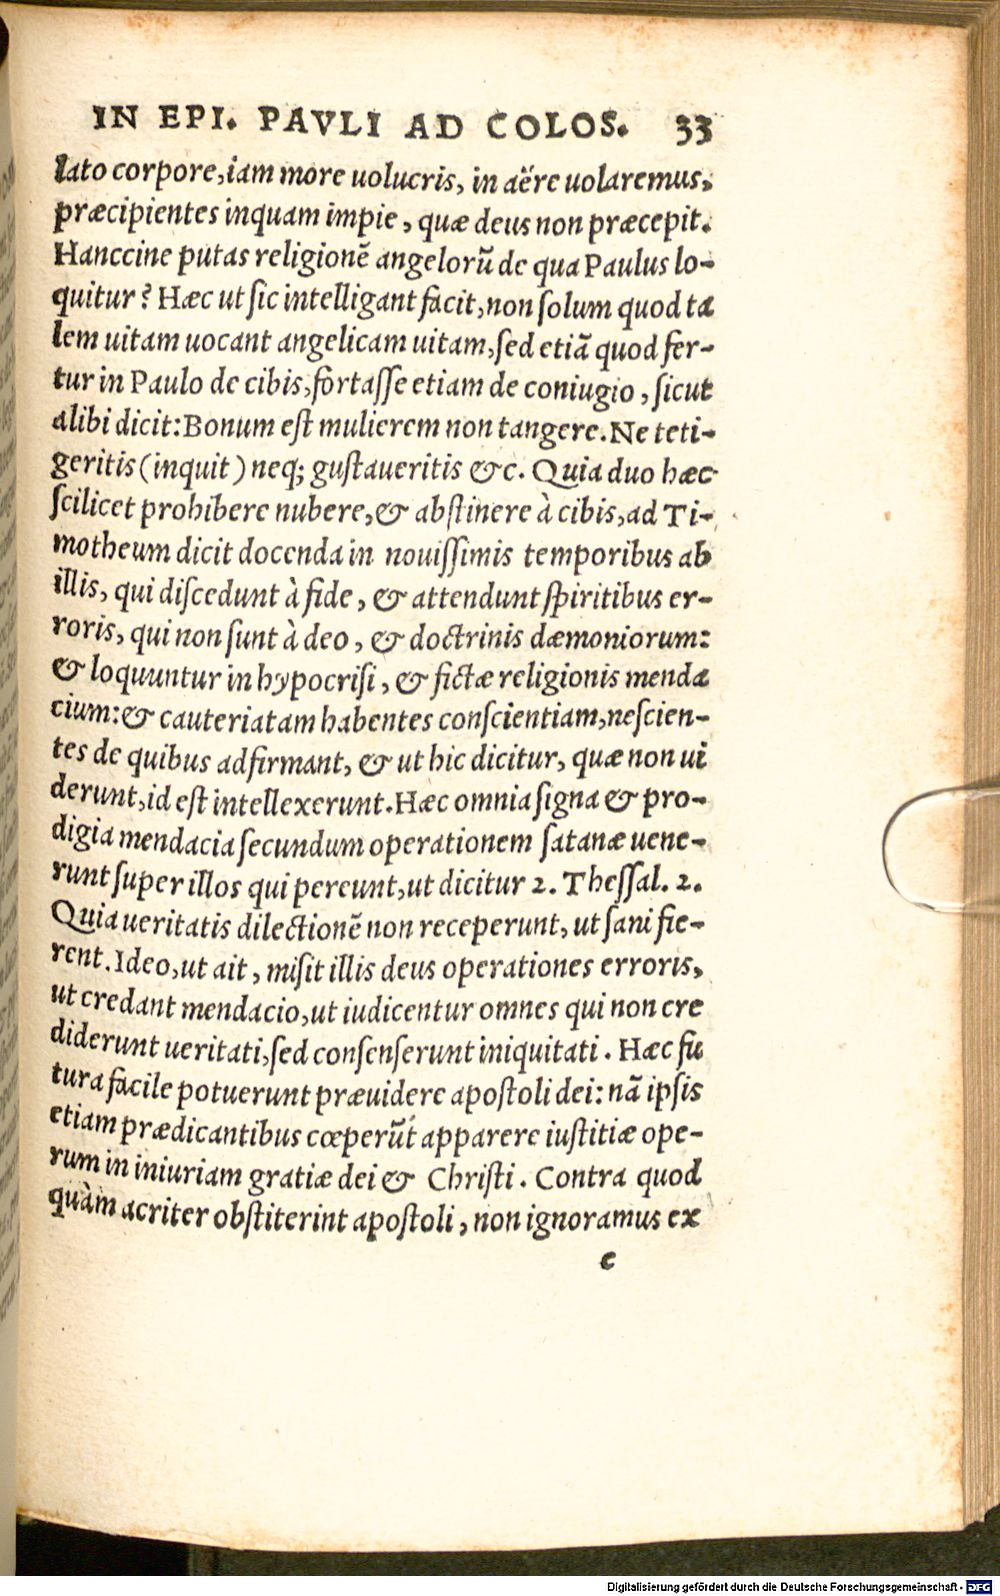 IN EPI. PAVLI AD COLOS. 33
lato corpore, iam more uolucris, in aëre uolaremus,
præcipientes inquam impie, quæ deus non præcepit.
Hanccine putas religionē angelorū de qua Paulus lo-
quitur? Hæc ut sic intelligant facit, non ſolum quod ta
lem uitam uocant angelicam uitam, ſed etiā quod fer-
tur in Paulo de cibis, fortaſſe etiam de coniugio, ſicut
alibi dicit: Bonum eſt mulierem non tangere. Ne teti-
geritis (inquit) neq; guſtaueritis &c. Quia duo hæc
ſcilicet prohibere nubere, & abſtinere à cibis, ad Ti-
motheum dicit docenda in nouiſſimis temporibus ab
illis, qui diſcedunt à fide, & attendunt ſpiritibus er-
roris, qui non ſunt à deo, & doctrinis dæmoniorum:
& loquuntur in hypocriſi, & fictæ religionis menda
cium: & cauteriatam habentes conſcientiam, neſcien-
tes de quibus adfirmant, & ut hic dicitur, quæ non ui
derunt, id eſt intellexerunt. Hæc omnia ſigna & pro-
digia mendacia ſecundum operationem ſatanæ uene-
runt ſuper illos qui pereunt, ut dicitur 2. Theſſal. 2.
Quia ueritatis dilectionē non receperunt, ut ſani fie-
rent. Ideo, ut ait, miſit illis deus operationes erroris,
ut credant mendacio, ut iudicentur omnes qui non cre
diderunt ueritati, ſed conſenſerunt iniquitati. Hæc fu
tura facile potuerunt præuidere apoſtoli dei: nā ipſis
etiam prædicantibus cœperūt apparere iuſtitiæ ope-
rum in iniuriam gratiæ dei & Chriſti. Contra quod
quàm acriter obſtiterint apoſtoli, non ignoramus ex
e
Digitalisierung gefördert durch die Deutsche Forschungsgemeinschaft - DFG